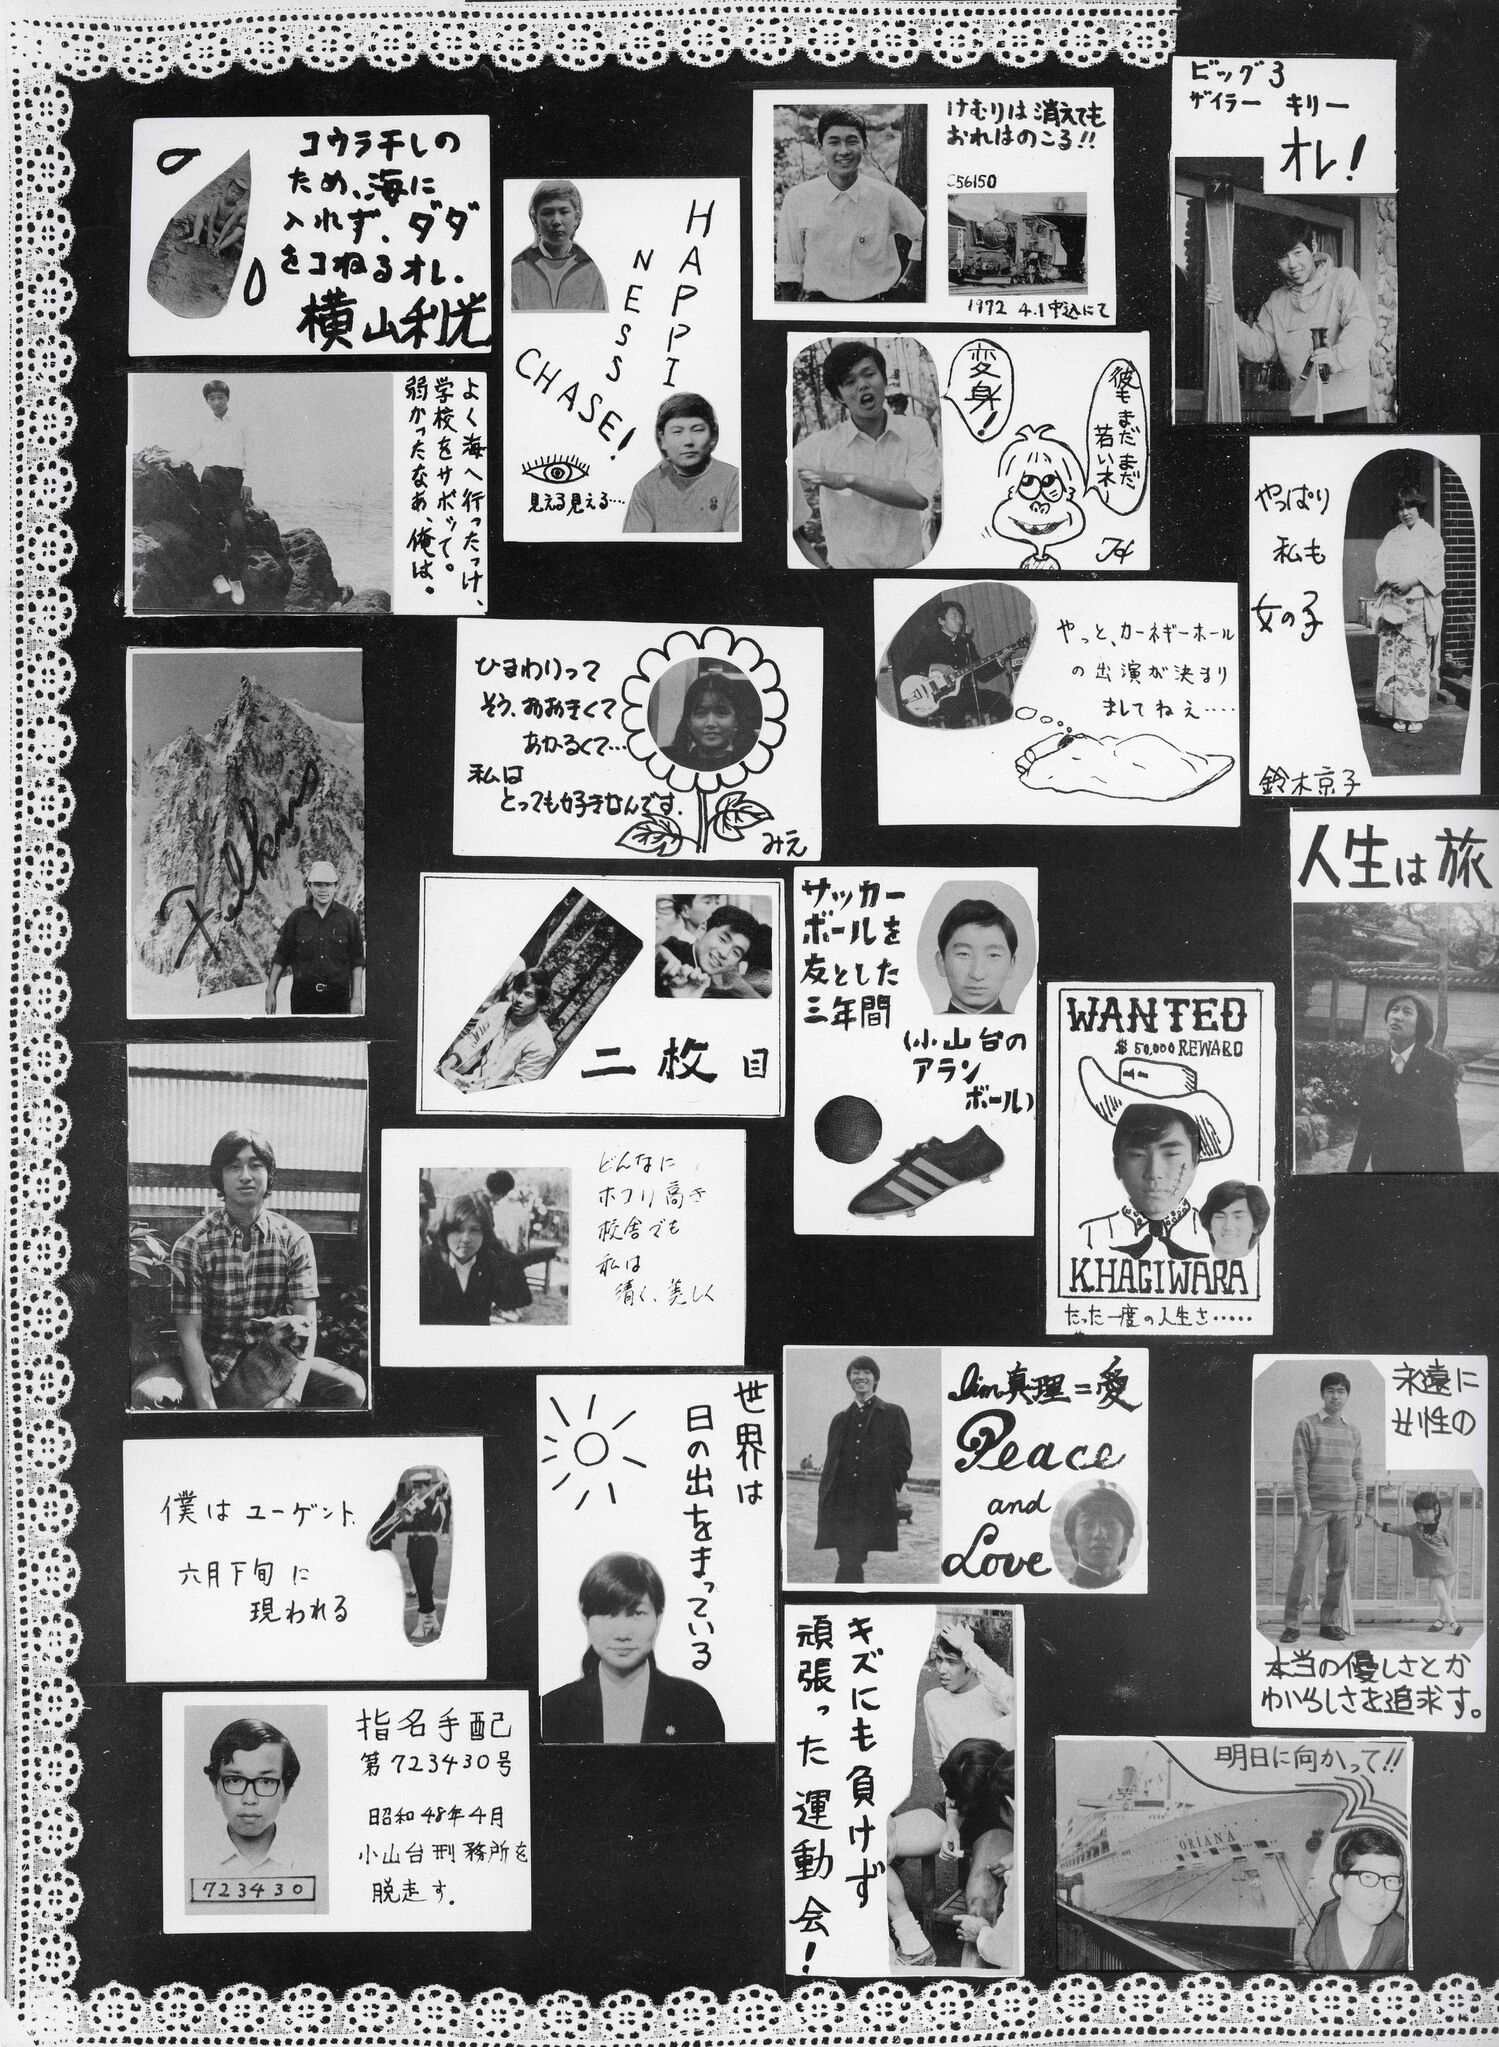 コウラ干しの
ため、海に
入れず、ダダ
をコねるオレ.
横山利光
HAPPI
NESS
CHASE!
見える見える…
けむりは消えても
おれはのこる!!
C56150
1972 4.1 中込にて
ビッグ3
ザイラー キリー
オレ!
よく海へ行ったっけ、
学校をサボって。
弱かったなあ、俺は。
変身!
彼もまだまだ
若いネー
やっぱり
私も
女の子
鈴木京子
ひまわりって
そう、おおきくて
あかるくて…
私は
とっても好きなんです.
みえ
やっと、カーネギーホール
の出演が決まり
ましてねえ‥‥
人生は旅
二枚目
サッカー
ボールを
友とした
三年間
(小山台の
アラン
ボール)
WANTED
$50,000 REWARD
K.HAGIWARA
たった一度の人生さ‥‥‥
どんなに
ホコリ高き
校舎でも
私は
清く、美しく
世界は
日の出をまっている
I'm 真理=愛
Peace
and
Love
永遠に
女性の
本当の優しさとか
わいらしさを追求す。
僕はユーゲント.
六月下旬に
現われる
指名手配
第723430号
昭和48年4月
小山台刑務所を
脱走す.
723430
キズにも負けず
頑張った運動会!
明日に向かって!!
ORIANA